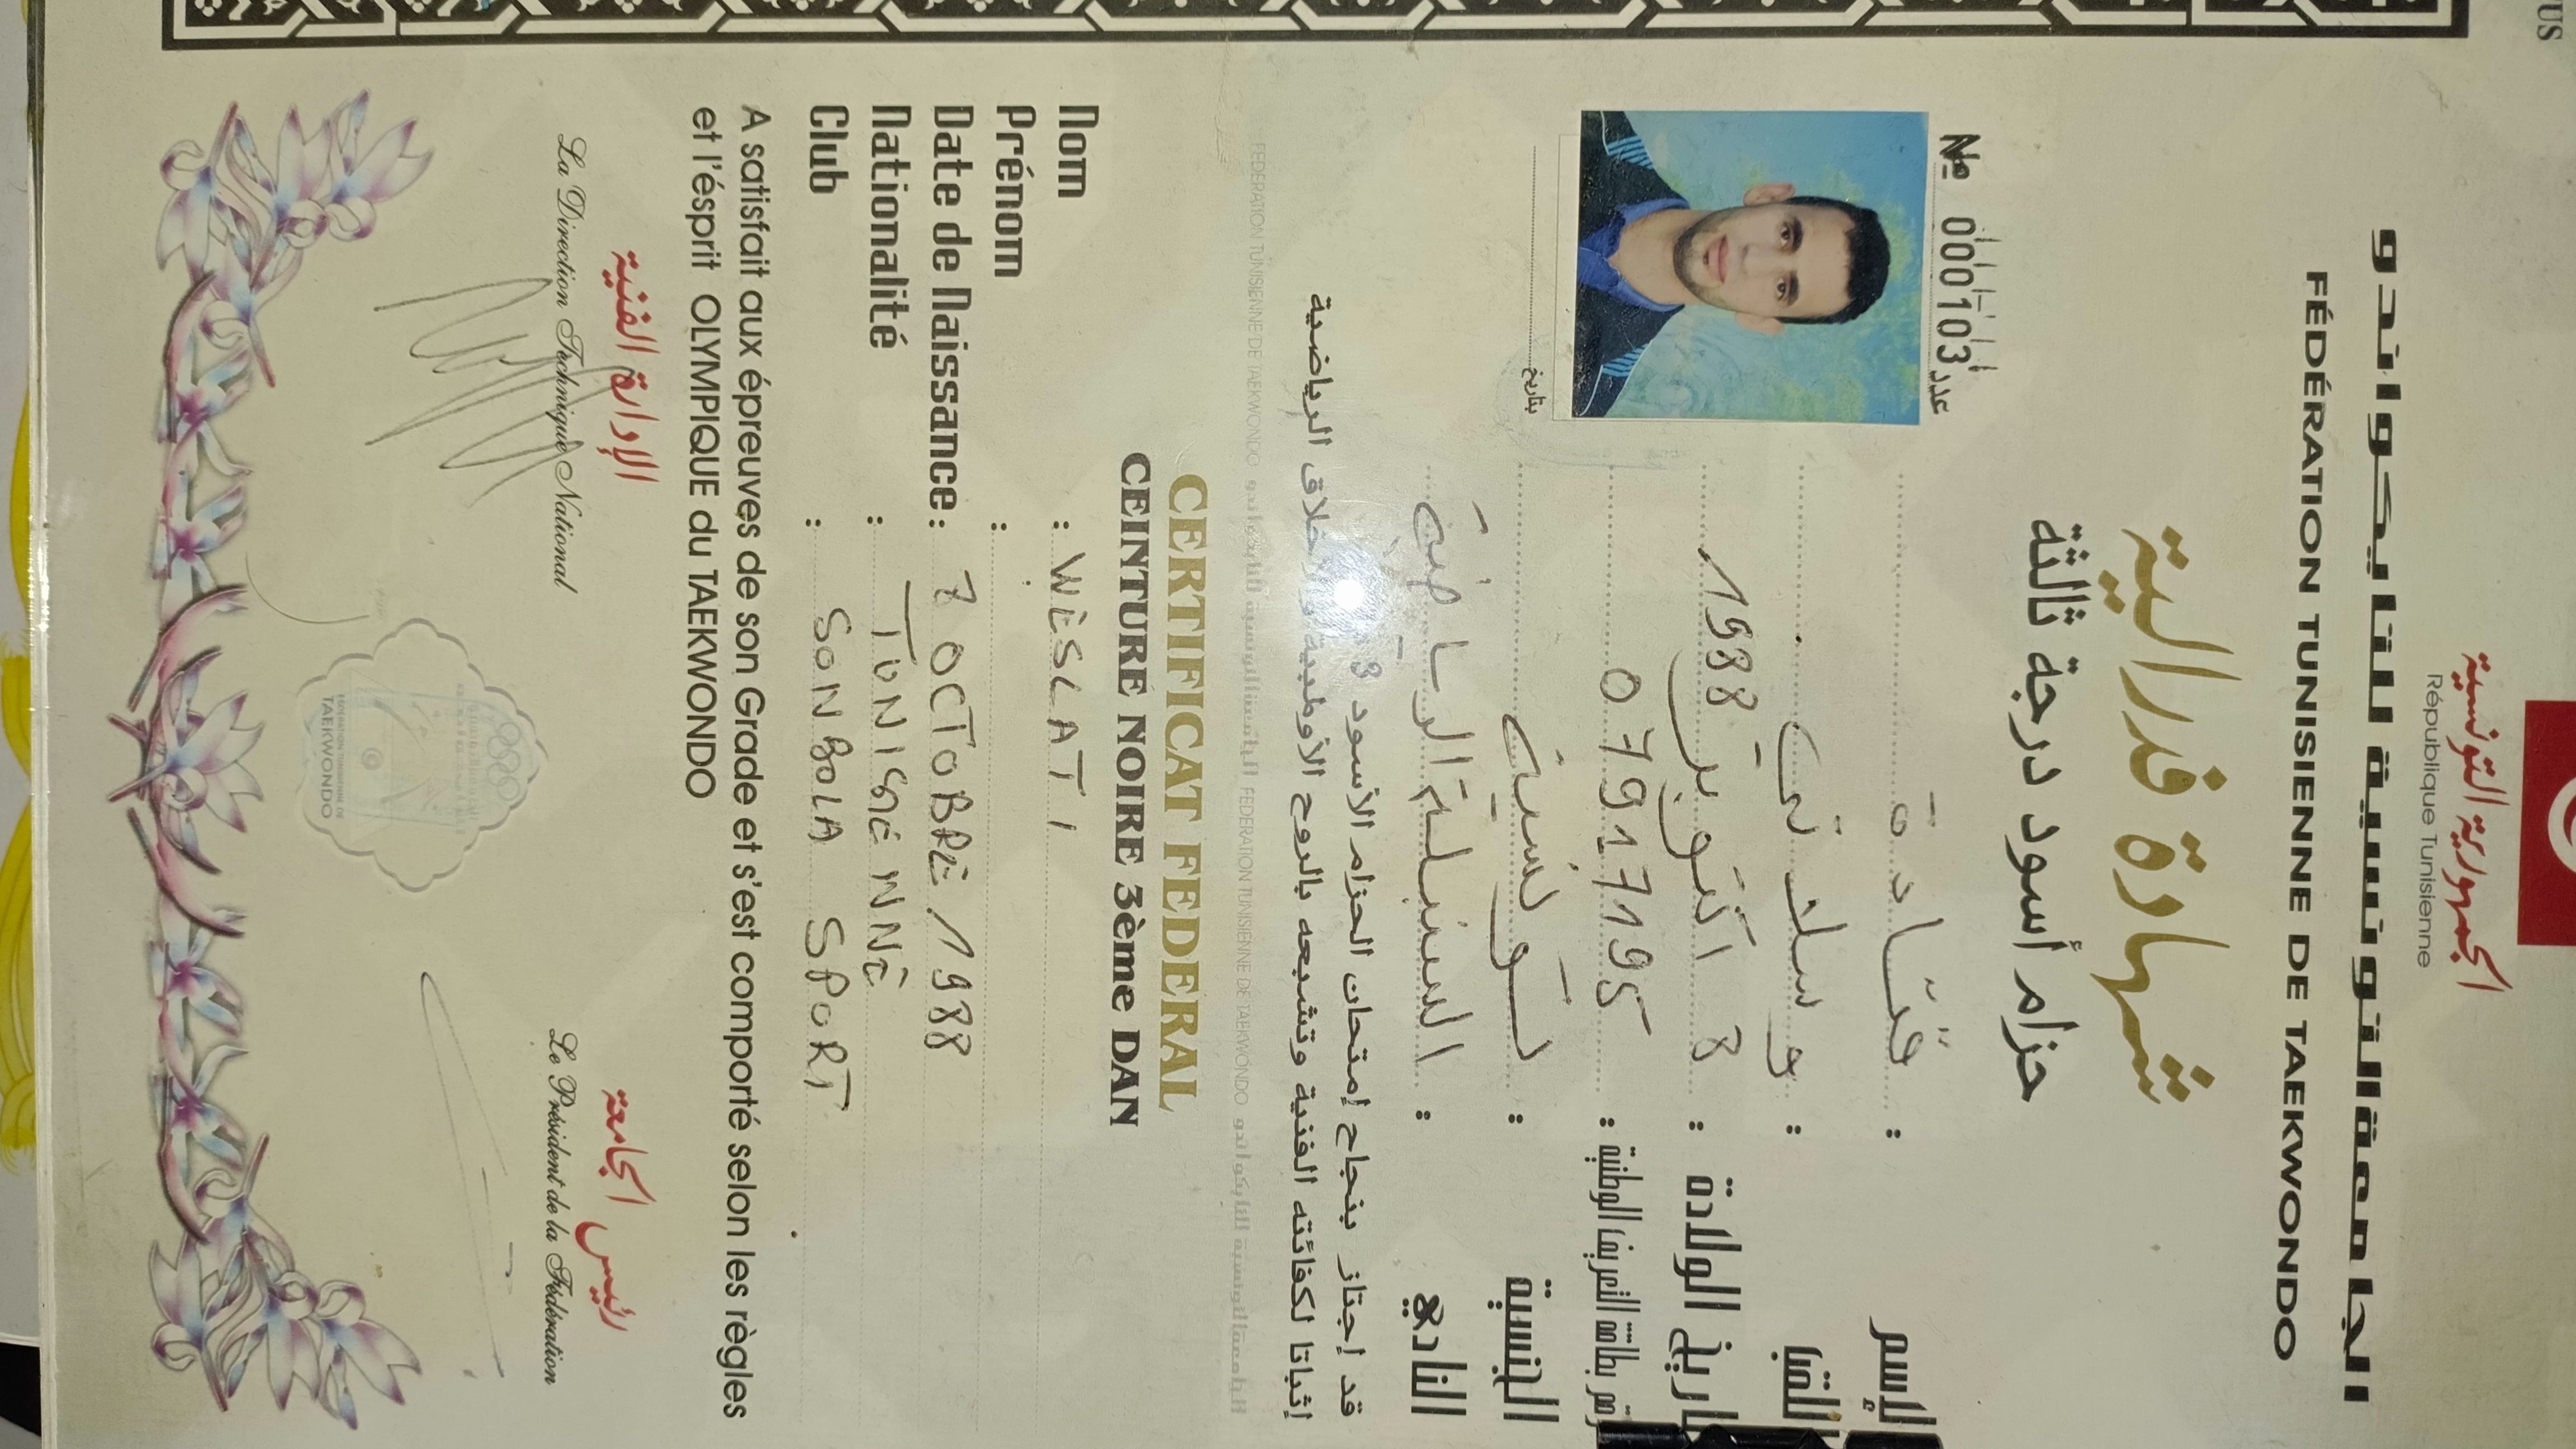 الجمهورية التونسية
République Tunisienne
الجامعة التونسية للتايكواندو
FÉDÉRATION TUNISIENNE DE TAEKWONDO
شهادة فدرالية
حزام أسود درجة ثالثة
№ 000103 عدد
بتاريخ
الإسم :
اللقب : وسلاتي
تاريخ الولادة : 8 اكتوبر 1988
رقم بطاقة التعريف الوطنية : 07917195
الجنسية : تونسية
النادي : السنبلة الرياضية
قد إجتاز بنجاح إمتحان الحزام الأسود
إثباتا لكفائته الفنية وتشبعه بالروح الأولمبية والأخلاق الرياضية
FEDERATION TUNISIENNE DE TAEKWONDO الجامعة التونسية للتايكواندو FEDERATION TUNISIENNE DE TAEKWONDO الجامعة التونسية للتايكواندو
CERTIFICAT FEDERAL
CEINTURE NOIRE 3ème DAN
Nom : WESLATI
Prénom :
Date de Naissance : 7 OCTOBRE 1988
Nationalité : TUNISIENNE
Club : SONBOLA SPORT
A satisfait aux épreuves de son Grade et s'est comporté selon les règles
et l'ésprit OLYMPIQUE du TAEKWONDO
الإدارة الفنية
رئيس الجامعة
La Direction Technique National
Le Président de la Fédération
TAEKWONDO